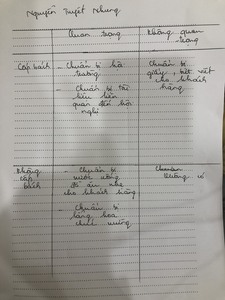 Nguyễn Tuyết Nhung
Quan trọng
Không quan
trọng
Cấp bách
- Chuẩn bị hội
trường
- Chuẩn bị tài
liệu liên
quan đến hội
nghị
Chuẩn bị
giấy, bút viết
cho khách
hàng
Không
cấp
bách
- Chuẩn bị
nước uống
đồ ăn nhẹ
cho khách hàng
- Chuẩn bị
lẵng hoa
chúc mừng